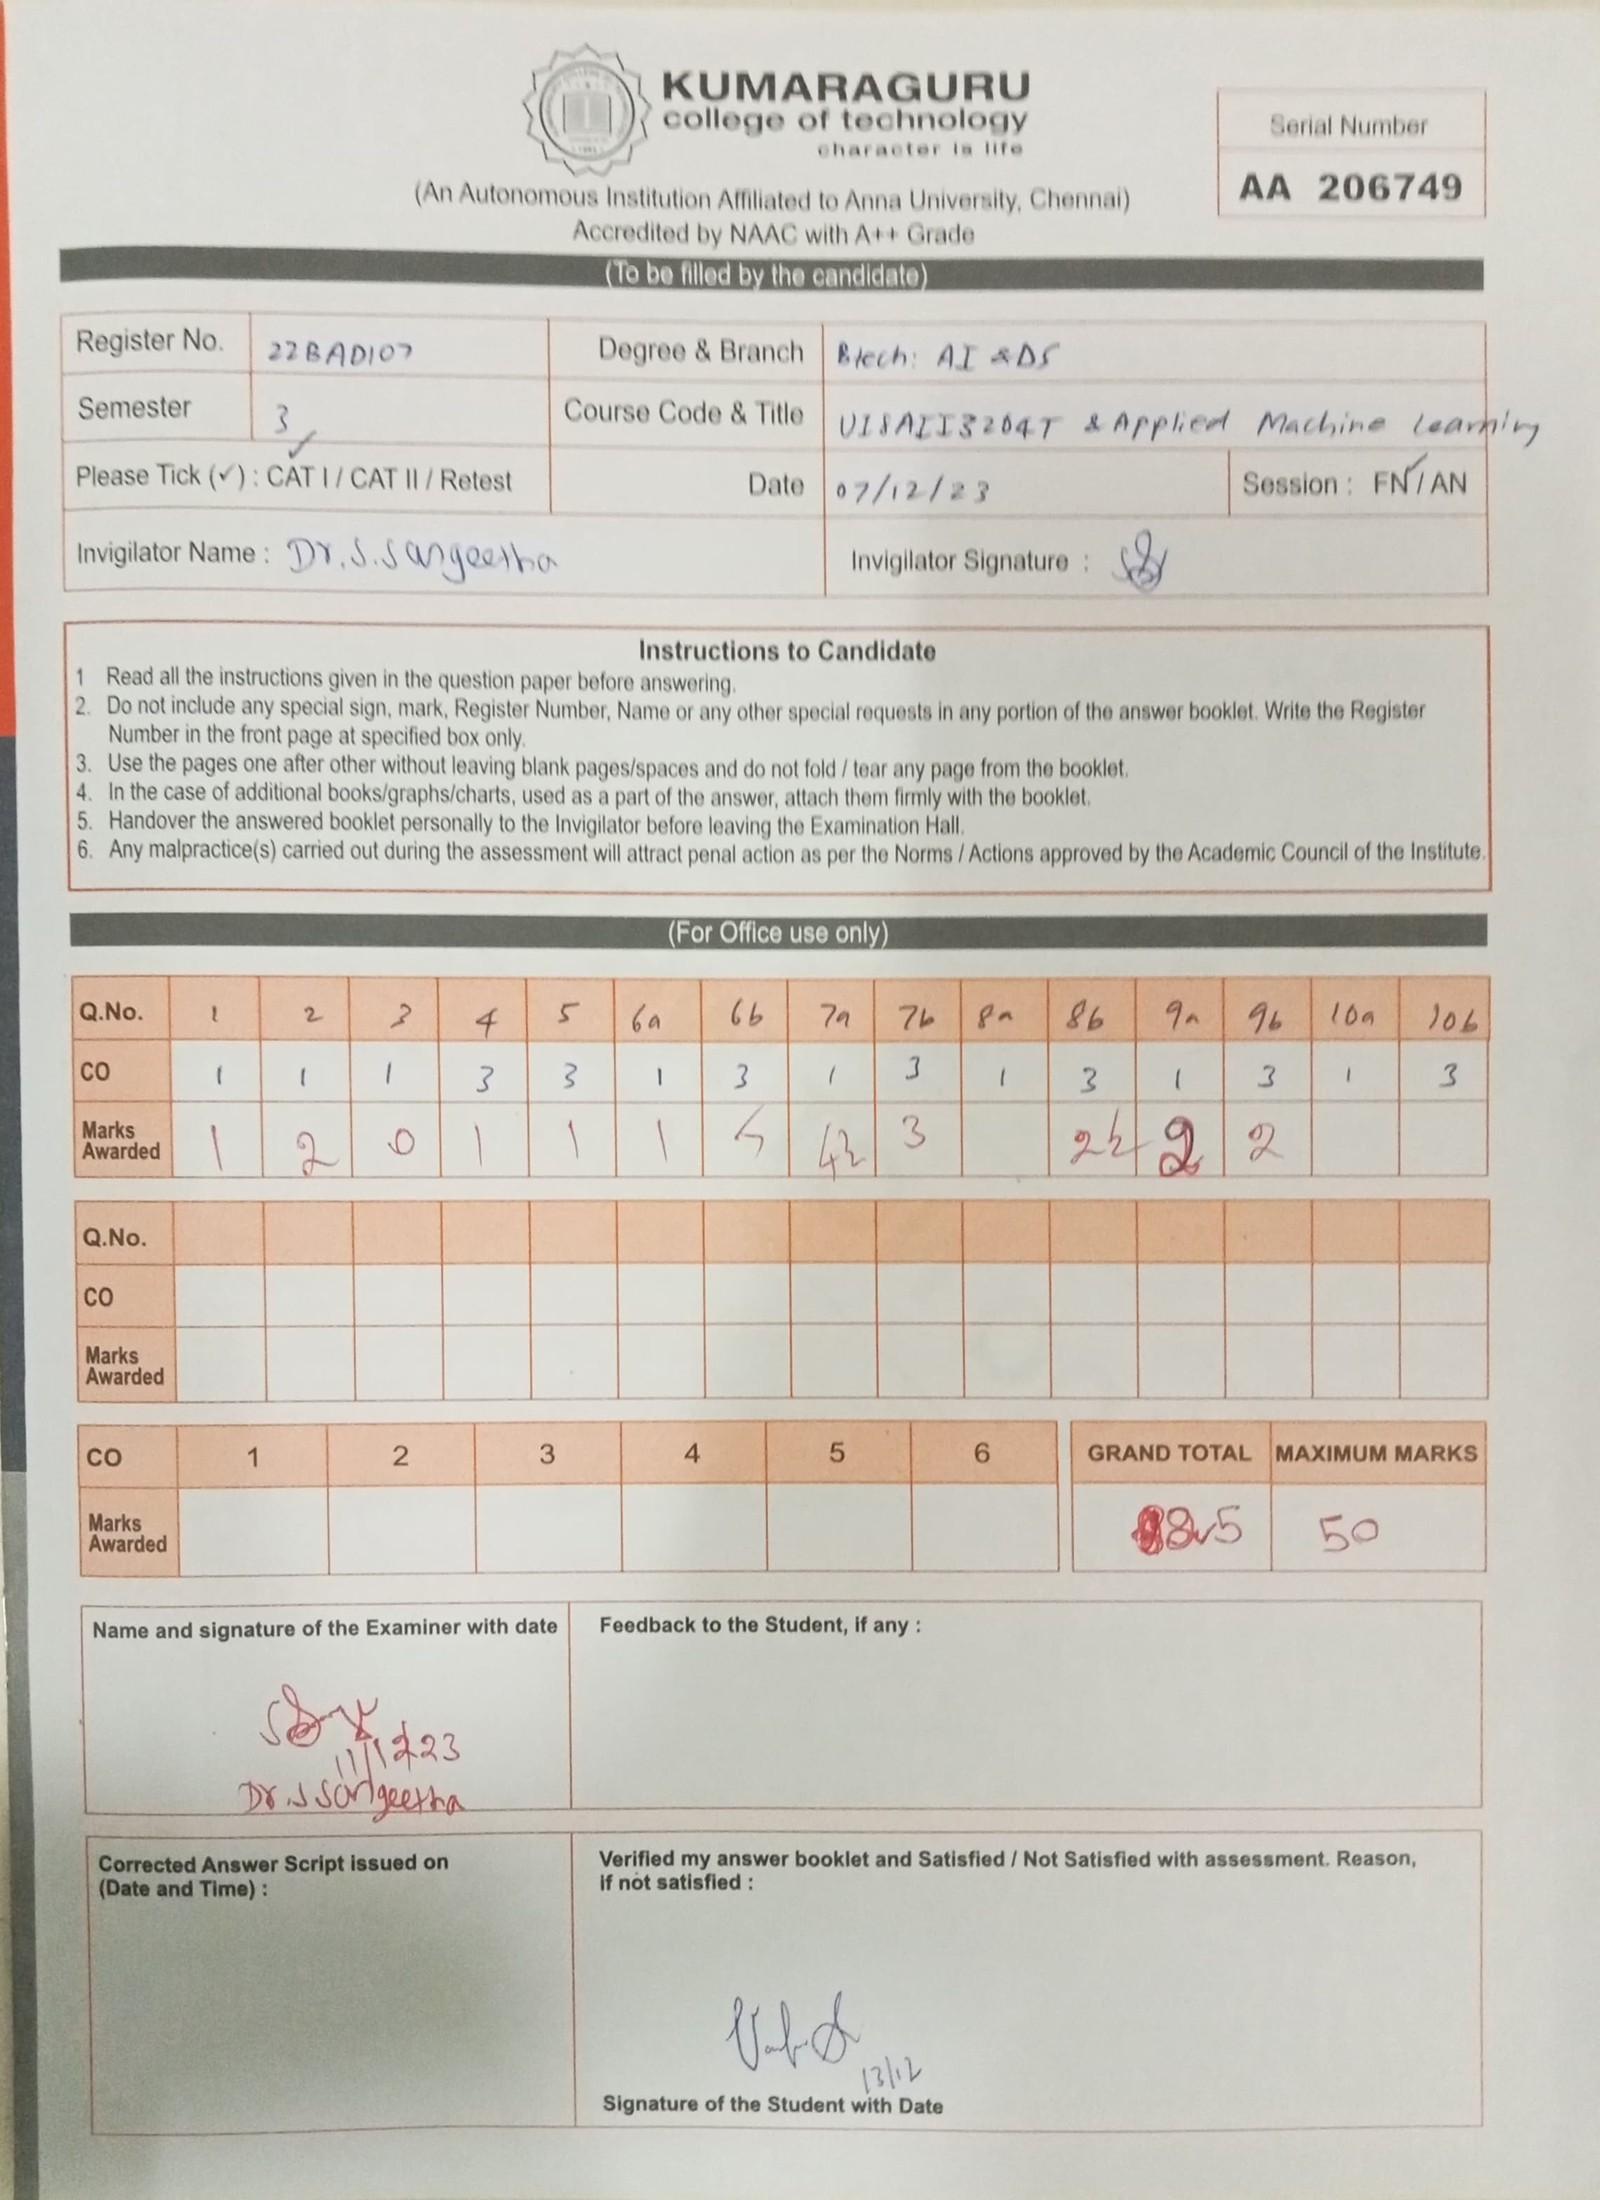 KUMARAGURU
college of technology
character is life
Serial Number
AA 206749
(An Autonomous Institution Affiliated to Anna University, Chennai)
Accredited by NAAC with A++ Grade
(To be filled by the candidate)
Register No. 22BAD107 Degree & Branch Btech: AI & DS
Semester 3 Course Code & Title U18AII3204T & Applied Machine Learning
Please Tick (✓) : CAT I / CAT II / Retest Date 07/12/23 Session : FN / AN
Invigilator Name : Dr.S.Sangeetha Invigilator Signature :
Instructions to Candidate
1 Read all the instructions given in the question paper before answering.
2. Do not include any special sign, mark, Register Number, Name or any other special requests in any portion of the answer booklet. Write the Register
Number in the front page at specified box only.
3. Use the pages one after other without leaving blank pages/spaces and do not fold / tear any page from the booklet.
4. In the case of additional books/graphs/charts, used as a part of the answer, attach them firmly with the booklet.
5. Handover the answered booklet personally to the Invigilator before leaving the Examination Hall.
6. Any malpractice(s) carried out during the assessment will attract penal action as per the Norms / Actions approved by the Academic Council of the Institute.
(For Office use only)
Q.No. 1 2 3 4 5 6a 6b 7a 7b 8a 8b 9a 9b 10a 10b
CO 1 1 1 3 3 1 3 1 3 1 3 1 3 1 3
Marks Awarded 1 2 0 1 1 1 3 2 2
Q.No.
CO
Marks Awarded
CO 1 2 3 4 5 6 GRAND TOTAL MAXIMUM MARKS
Marks Awarded 50
Name and signature of the Examiner with date
Feedback to the Student, if any :
11/12/23
Dr.S Sangeetha
Corrected Answer Script issued on
(Date and Time) :
Verified my answer booklet and Satisfied / Not Satisfied with assessment. Reason,
if not satisfied :
13/12
Signature of the Student with Date